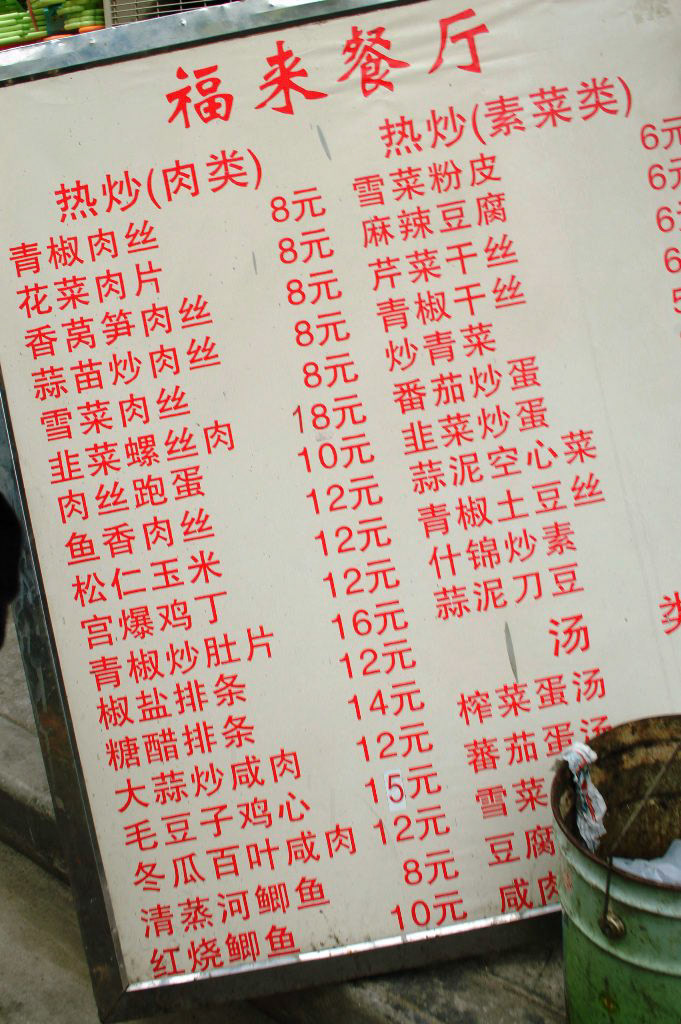 福来餐厅
热炒(肉类)
青椒肉丝 8元
花菜肉片 8元
香莴笋肉丝 8元
蒜苗炒肉丝 8元
雪菜肉丝 8元
韭菜螺丝肉 18元
肉丝跑蛋 10元
鱼香肉丝 12元
松仁玉米 12元
宫爆鸡丁 12元
青椒炒肚片 16元
椒盐排条 12元
糖醋排条 14元
大蒜炒咸肉 12元
毛豆子鸡心 15元
冬瓜百叶咸肉 12元
清蒸河鲫鱼 8元
红烧鲫鱼 10元
热炒(素菜类)
雪菜粉皮 6元
麻辣豆腐 6元
芹菜干丝 6
青椒干丝 6
炒青菜
番茄炒蛋
韭菜炒蛋
蒜泥空心菜
青椒土豆丝
什锦炒素
蒜泥刀豆
汤 类
榨菜蛋汤
蕃茄蛋汤
雪菜
豆腐
咸肉